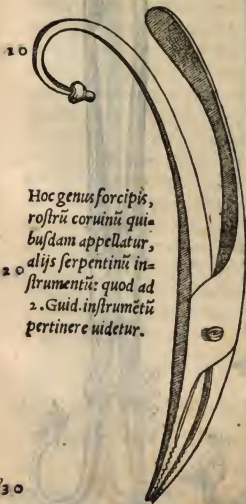 10
Hoc genus forcipis,
roſtrū coruinū qui=
buſdam appellatur,
alijs ſerpentinū in=
20
ſtrumentū: quod ad
2. Guid. inſtrumētū
pertinere uidetur.
30